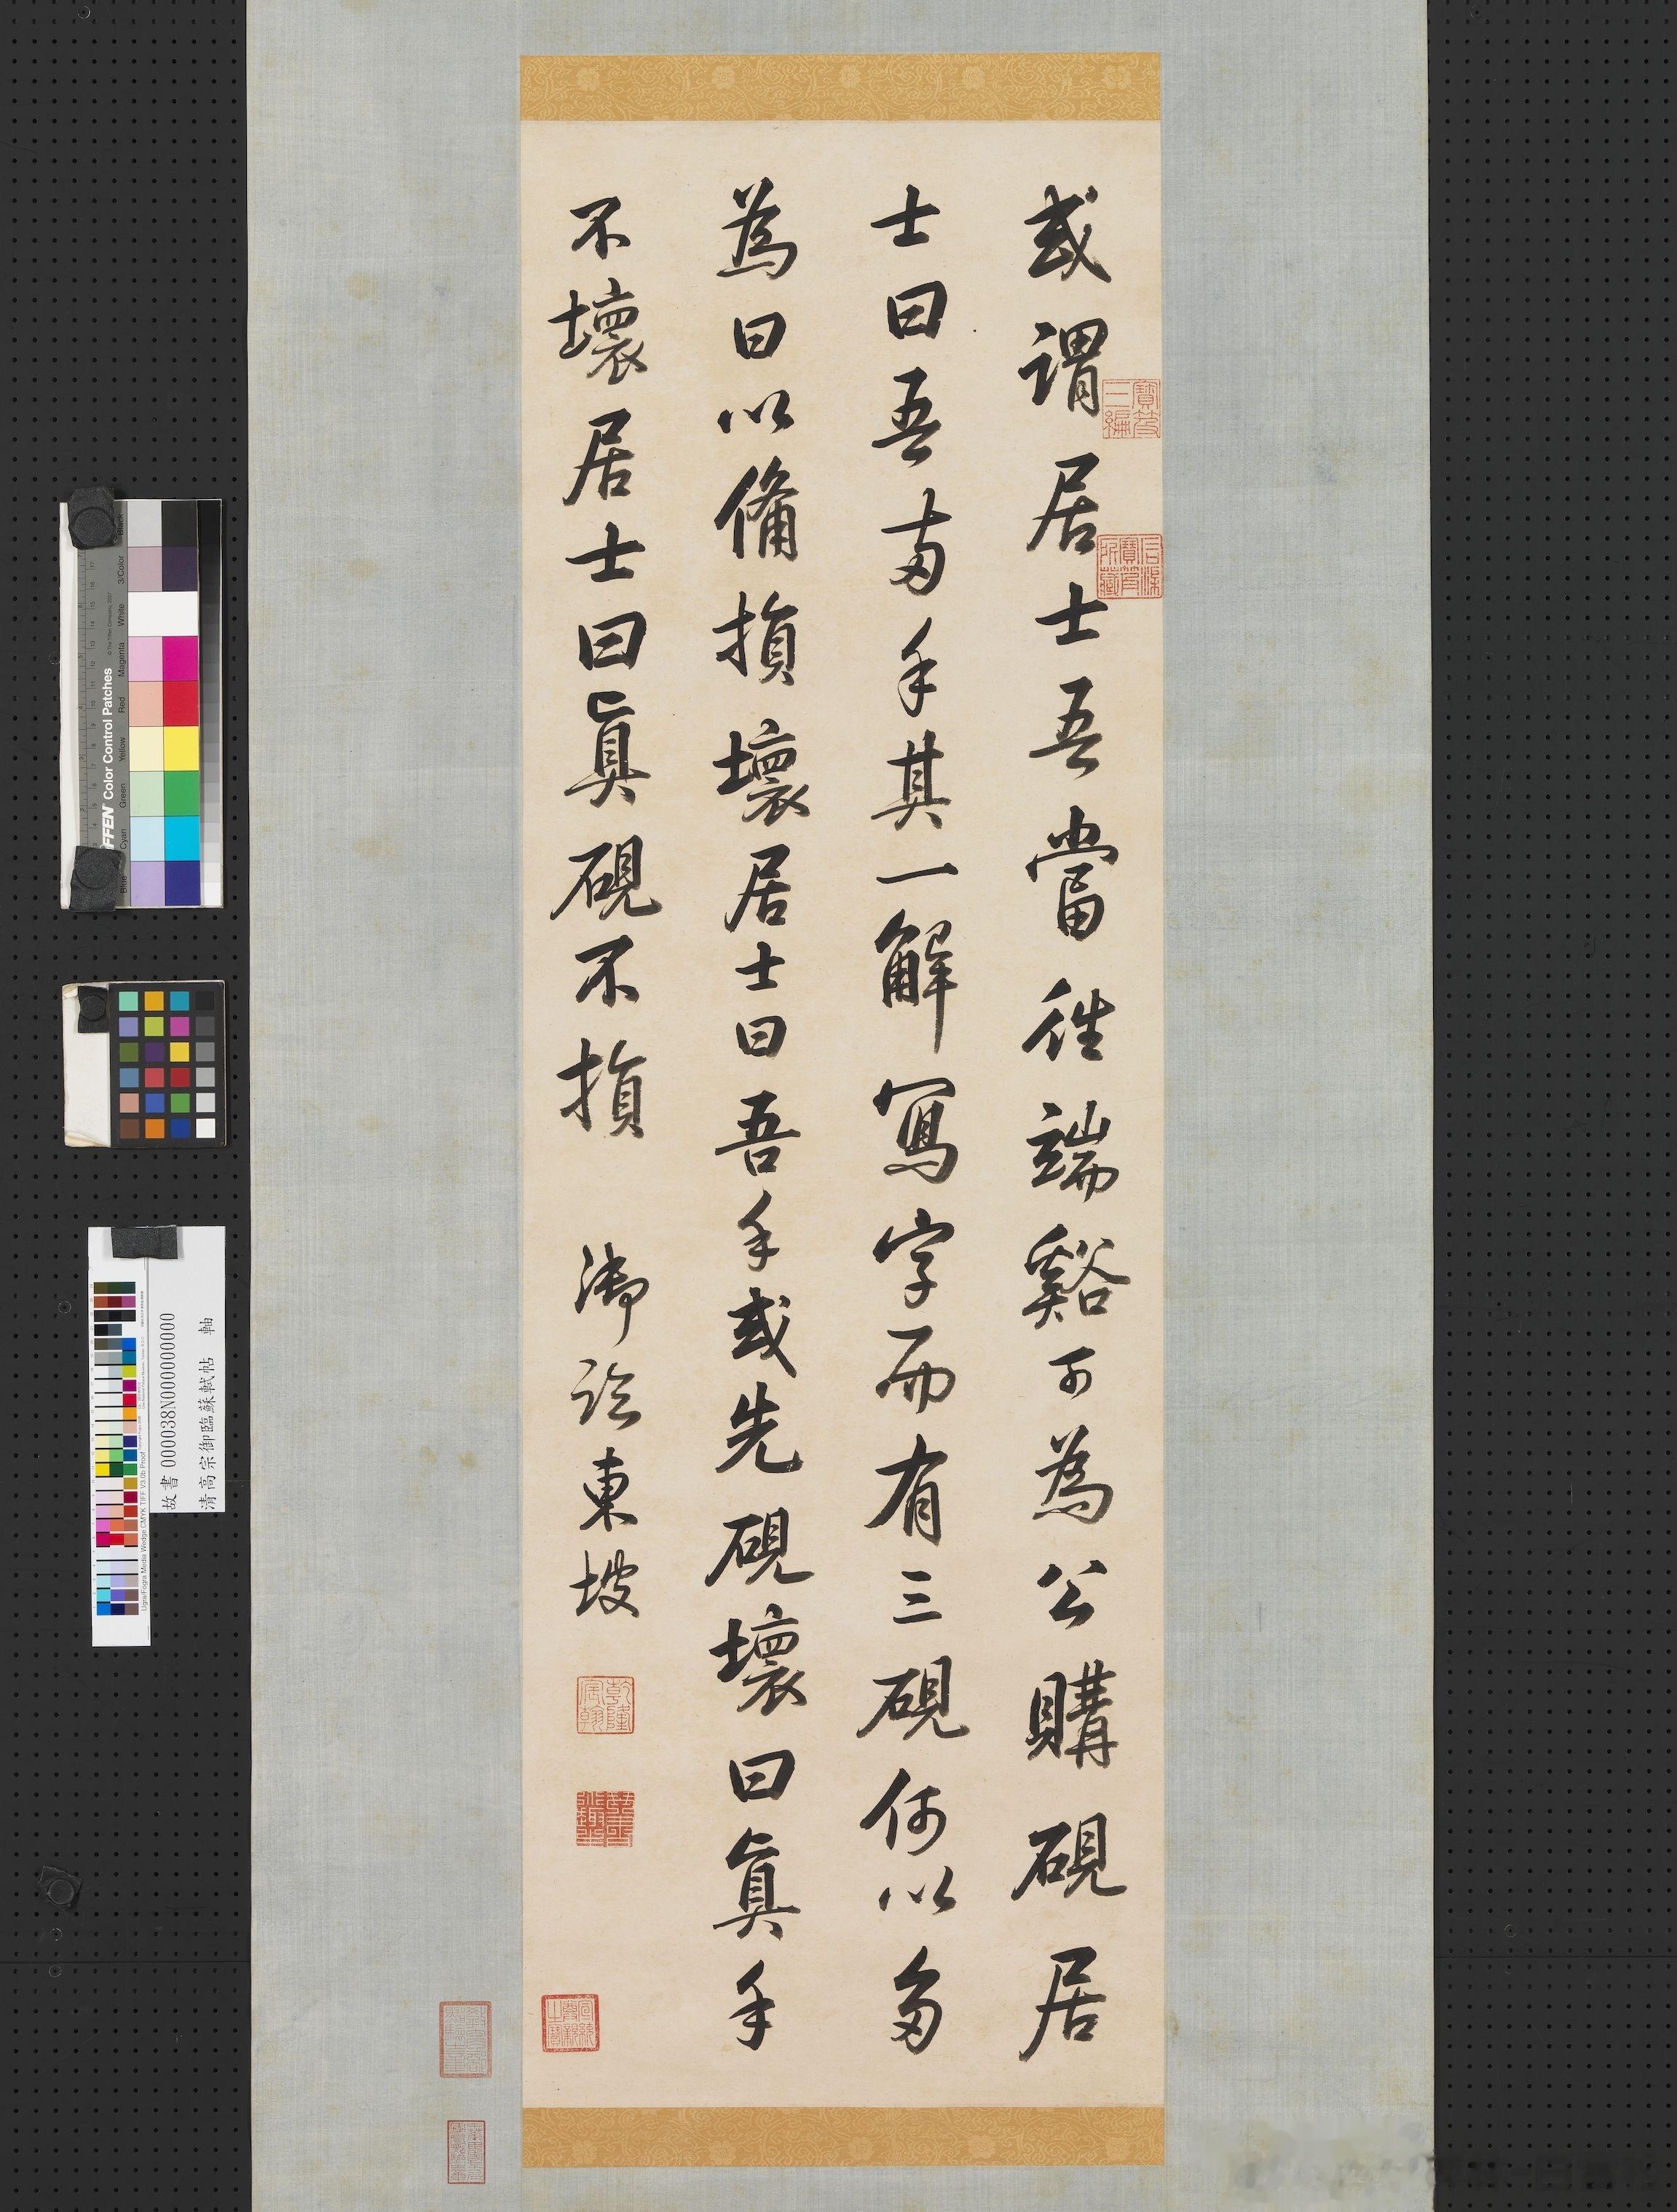 或謂居士吾當往端谿可為公購硯居
士曰吾兩手其一解寫字而有三硯何以多
為曰以備損壞居士曰吾手或先硯壞曰真手
不壞居士曰真硯不損
御臨東坡
寶笈三編
宣統御覽之寶
乾隆宸翰
故書 000038N000000000
清高宗御臨蘇軾帖 軸
Color Control Patches
© The Tiffen Company, 2007
Blue
Cyan
Green
Yellow
Red
Magenta
White
3/Color
Black